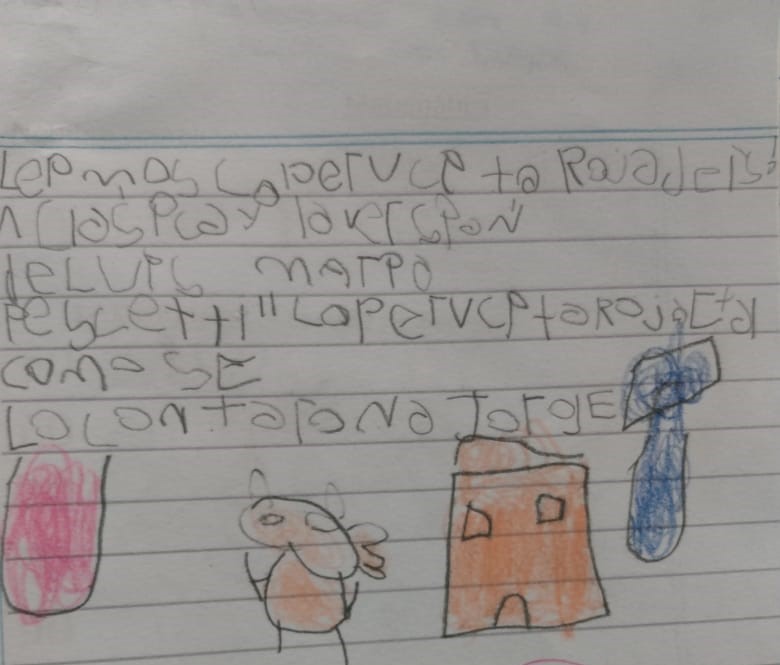 Lepmos caperucpta Roja de is
n claspcay laverspon
de Lups marpa
Pescetti "caperucptaRojaCtal
como SE
LocontaronaJorgE